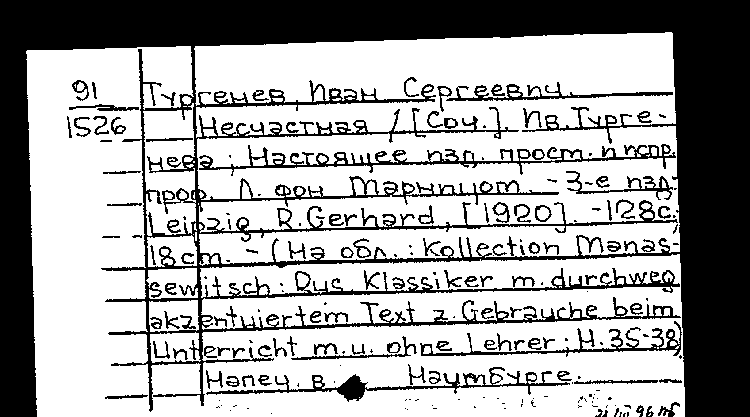 91 Тургенев, Иван Сергеевич.
1526 Несчастная / [Соч.] Ив. Турге-
нева; Настоящее изд. прост. и испр.
проф. Л. фон Марницом. - 3-е изд.
Leipzig, R. Gerhard, [1920]. - 128с;
18cm. - (На обл.: Kollection Manas-
sewitsch: Rus Klassiker m. durchweg
akzentuiertem Text z. Gebrauche beim
Unterricht m.u. ohne Lehrer; H. 35-38)
Напеч. в Наумбурге.